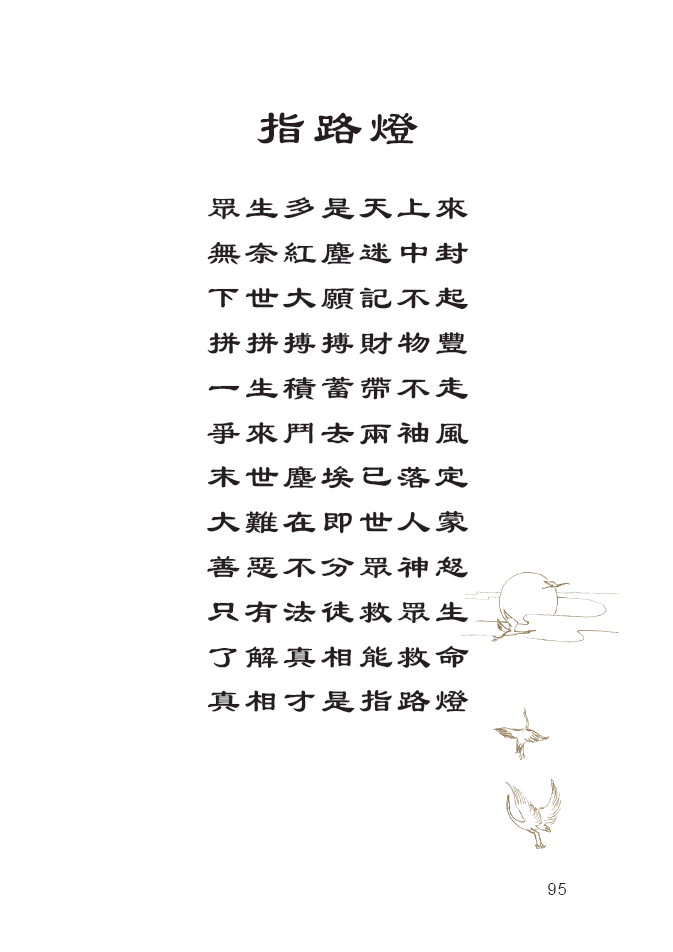 指路燈
眾生多是天上來
無奈紅塵迷中封
下世大願記不起
拼拼搏搏財物豐
一生積蓄帶不走
爭來鬥去兩袖風
末世塵埃已落定
大難在即世人蒙
善惡不分眾神怒
只有法徒救眾生
了解真相能救命
真相才是指路燈
95